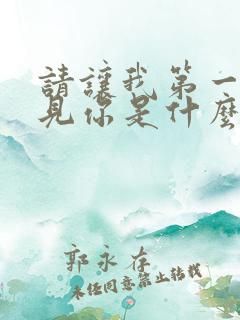 請讓我第一
見你是什麼
郭永存
未經同意禁止轉載